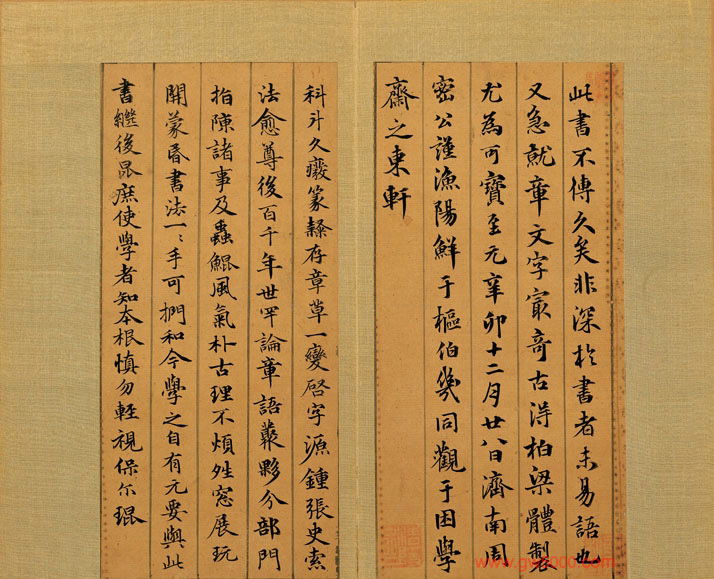 此書不傳久矣非深於書者未易語也
又急就章文字冣奇古得柏梁體製
尤為可寶至元辛卯十二月廿八日濟南周
密公謹漁陽鮮于樞伯幾同觀于困學
齋之東軒
科斗久癈篆隸存章草一變啓字源鍾張史索
法愈尊後百千年世罕論章語叢夥分部門
指陳諸事及蟲鯤風氣朴古理不煩姓窓展玩
開蒙昏書法一〻手可捫和今學之自有元要與此
書繼後昆庶使學者知本根慎勿輕視保尔琨